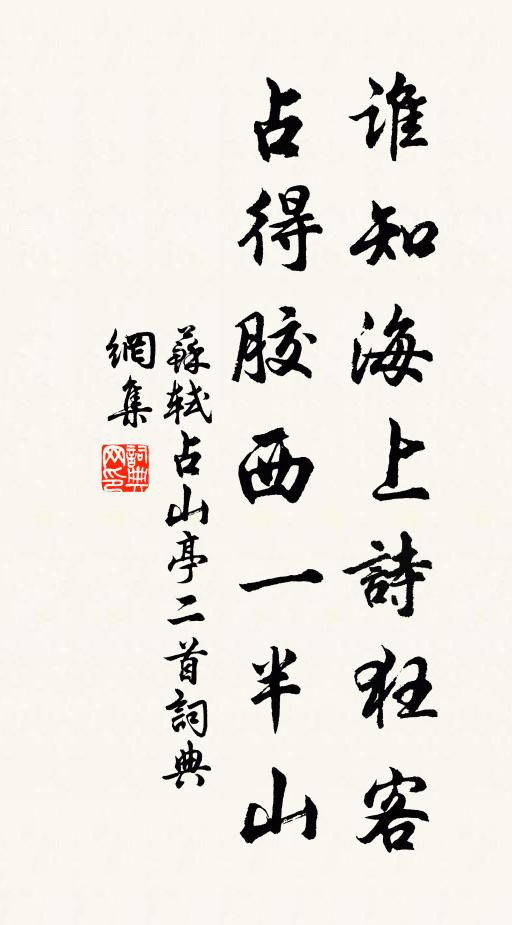 谁知海上詩狂客
占得胶西一半山
蘇軾占山亭二首詞典
網集
詞典
网印